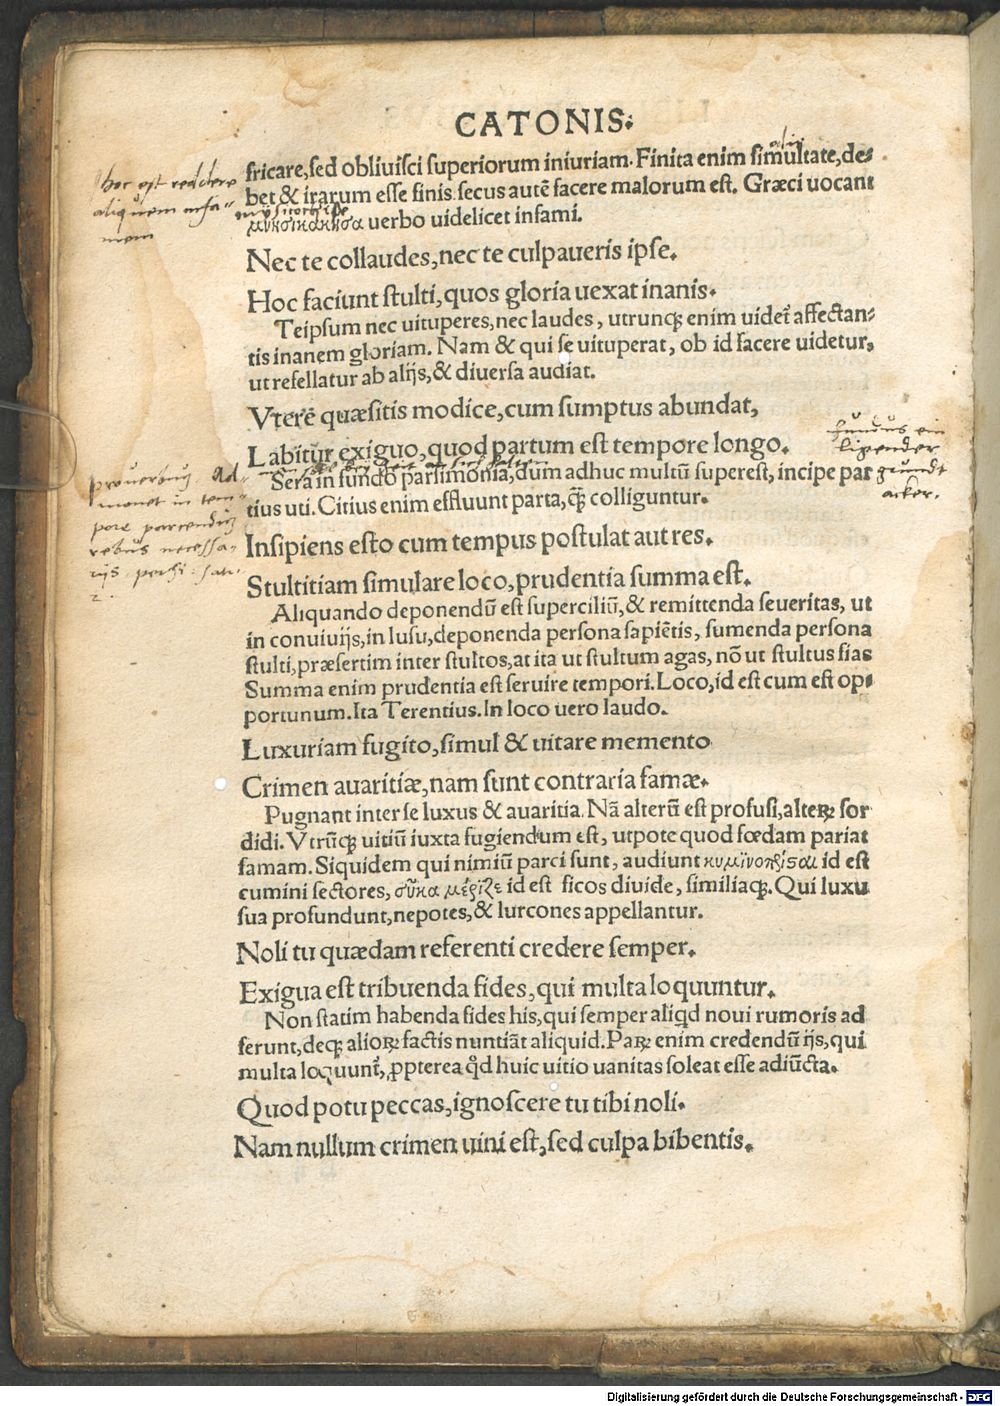 CATONIS.
fricare, sed obliuisci superiorum iniuriam. Finita enim simultate, de-
bet & irarum esse finis. secus autē facere malorum est. Græci uocant
μνησικακησα uerbo uidelicet infami.
hoc est reddere
aliquem infa-
mem
Nec te collaudes, nec te culpaueris ipse.
Hoc faciunt stulti, quos gloria uexat inanis.
Teipsum nec uituperes, nec laudes, utrunqꝫ enim uidet᷑ affectan-
tis inanem gloriam. Nam & qui se uituperat, ob id facere uidetur,
ut refellatur ab alijs, & diuersa audiat.
Vterē quæsitis modice, cum sumptus abundat,
Labitur exiguo, quod partum est tempore longo.
Sera in fundo parsimonia, dum adhuc multū superest, incipe par
tius uti. Citius enim effluunt parta, qꝫ̄ colliguntur.
fundus ein
ligender
grundt
acker.
prouerbiuɜ ad-
monet in tem-
pore parcenduɜ
rebus necessa-
rijs
Insipiens esto cum tempus postulat aut res.
Stultitiam simulare loco, prudentia summa est.
Aliquando deponendū est superciliū, & remittenda seueritas, ut
in conuiuijs, in lusu, deponenda persona sapiētis, sumenda persona
stulti, præsertim inter stultos, at ita ut stultum agas, nō ut stultus fias
Summa enim prudentia est seruire tempori. Loco, id est cum est op-
portunum. Ita Terentius. In loco uero laudo.
Luxuriam fugito, simul & uitare memento
Crimen auaritiæ, nam sunt contraria famæ.
Pugnant inter se luxus & auaritia. Nā alterū est profusi, alteꝝ sor
didi. Vtrūqꝫ uitiū iuxta fugiendum est, utpote quod fœdam pariat
famam. Siquidem qui nimiū parci sunt, audiunt κυμινοπρίσαι id est
cumini sectores, σῦκα μέριζε id est ficos diuide, similiaqꝫ. Qui luxu
sua profundunt, nepotes, & lurcones appellantur.
Noli tu quædam referenti credere semper.
Exigua est tribuenda fides, qui multa loquuntur.
Non statim habenda fides his, qui semper aliqd noui rumoris ad
ferunt, deqꝫ alioꝝ factis nuntiāt aliquid. Paꝝ enim credendū ijs, qui
multa loquunt᷑, ꝓpterea qͦd huic uitio uanitas soleat esse adiūcta.
Quod potu peccas, ignoscere tu tibi noli.
Nam nullum crimen uini est, sed culpa bibentis.
Digitalisierung gefördert durch die Deutsche Forschungsgemeinschaft - DFG